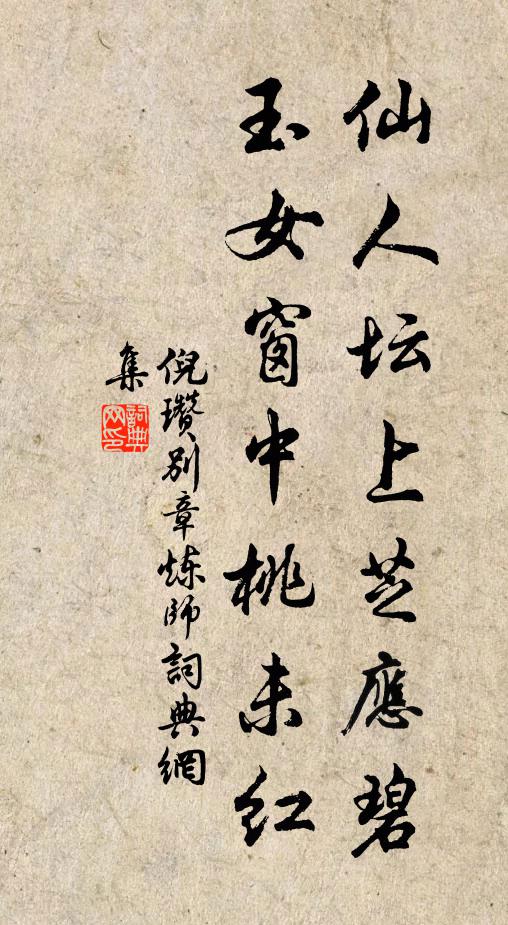 仙人坛上芝應碧
玉女窗中桃未红
倪瓚别章炼師詞典網
集
詞典網印